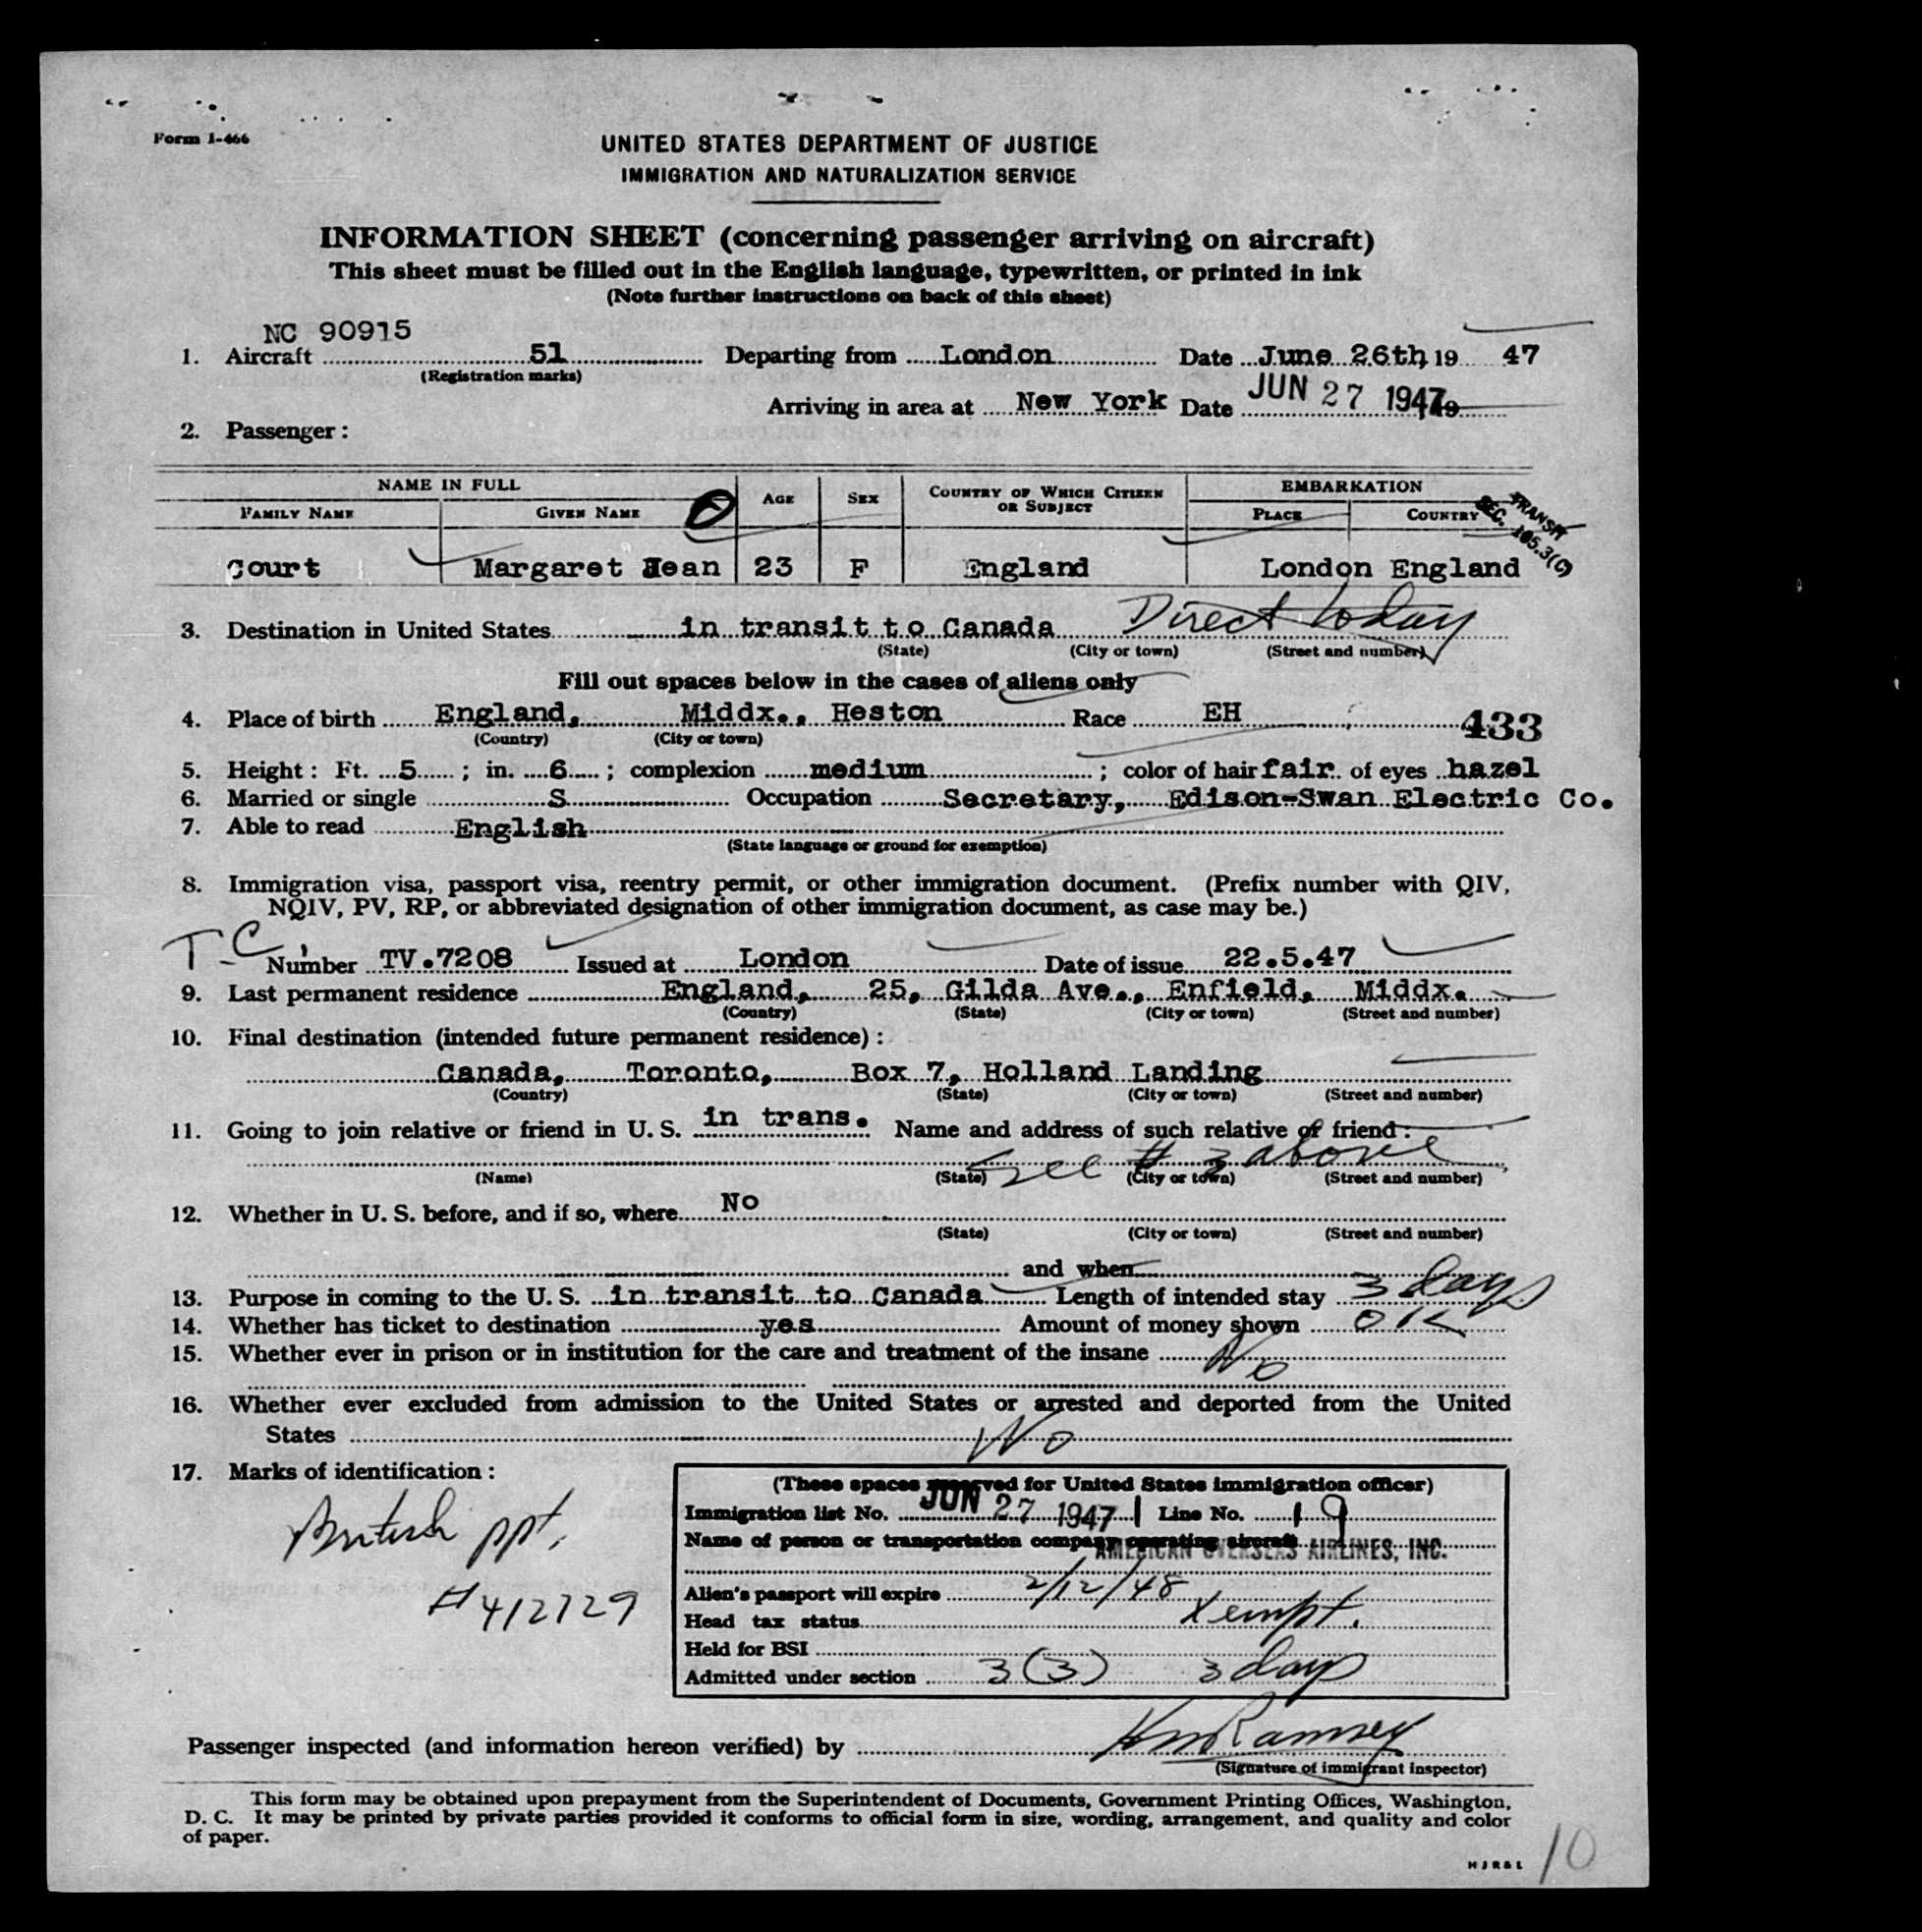 Form I-466
UNITED STATES DEPARTMENT OF JUSTICE
IMMIGRATION AND NATURALIZATION SERVICE
INFORMATION SHEET (concerning passenger arriving on aircraft)
This sheet must be filled out in the English language, typewritten, or printed in ink
(Note further instructions on back of this sheet)
NC 90915
1. Aircraft 51 Departing from London Date June 26th, 19 47
(Registration marks)
Arriving in area at New York Date JUN 27 1947 19
2. Passenger:
NAME IN FULL AGE SEX COUNTRY OF WHICH CITIZEN OR SUBJECT EMBARKATION
FAMILY NAME GIVEN NAME PLACE COUNTRY
TRANSIT
SEC. 165.3(c)
Court Margaret Jean 23 F England London England
3. Destination in United States in transit to Canada Direct today
(State) (City or town) (Street and number)
Fill out spaces below in the cases of aliens only
4. Place of birth England, Middx., Heston Race EH 433
(Country) (City or town)
5. Height: Ft. 5 ; in. 6 ; complexion medium ; color of hair fair of eyes hazel
6. Married or single S Occupation Secretary, Edison-Swan Electric Co.
7. Able to read English
(State language or ground for exemption)
8. Immigration visa, passport visa, reentry permit, or other immigration document. (Prefix number with QIV,
NQIV, PV, RP, or abbreviated designation of other immigration document, as case may be.)
T-C
Number TV.7208 Issued at London Date of issue 22.5.47
9. Last permanent residence England, 25, Gilda Ave., Enfield, Middx.
(Country) (State) (City or town) (Street and number)
10. Final destination (intended future permanent residence):
Canada, Toronto, Box 7, Holland Landing
(Country) (State) (City or town) (Street and number)
11. Going to join relative or friend in U. S. in trans. Name and address of such relative or friend:
See # 3 above
(Name) (State) (City or town) (Street and number)
12. Whether in U. S. before, and if so, where No
(State) (City or town) (Street and number)
and when
13. Purpose in coming to the U. S. in transit to Canada Length of intended stay 3 days
14. Whether has ticket to destination yes Amount of money shown OK
15. Whether ever in prison or in institution for the care and treatment of the insane No
16. Whether ever excluded from admission to the United States or arrested and deported from the United
States No
17. Marks of identification:
British ppt.
# 412729
(These spaces reserved for United States immigration officer)
Immigration list No. JUN 27 1947 1 Line No. 19
Name of person or transportation company operating aircraft
AMERICAN OVERSEAS AIRLINES, INC.
Alien's passport will expire 2/12/48
Head tax status Xempt.
Held for BSI
Admitted under section 3(3) 3 days
Passenger inspected (and information hereon verified) by Ramsey
(Signature of immigrant inspector)
This form may be obtained upon prepayment from the Superintendent of Documents, Government Printing Offices, Washington,
D. C. It may be printed by private parties provided it conforms to official form in size, wording, arrangement, and quality and color
of paper.
HJR&L
10